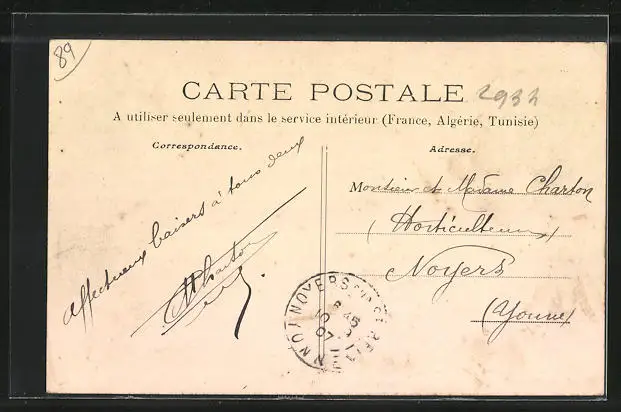 89
CARTE POSTALE
2934
A utiliser seulement dans le service intérieur (France, Algérie, Tunisie)
Correspondance.
Affectueux baisers à tous deux
Charton
Adresse.
Monsieur et Madame Charton
(Horticulteurs)
Noyers
(Yonne)
NOYERS
8 45
10
07